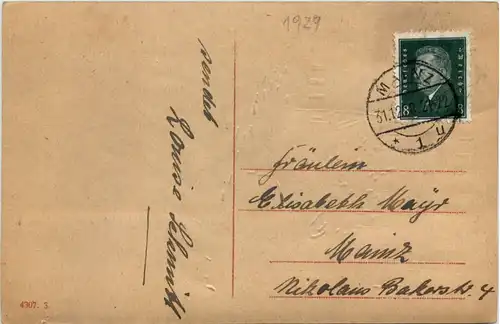 1929
sendet
Louise Schmitt
MAINZ
31.12.28
* 1 u
8
Fräulein
Elisabeth Mayr
Mainz
Nikolaus Beckerstr. 4
4307. 3